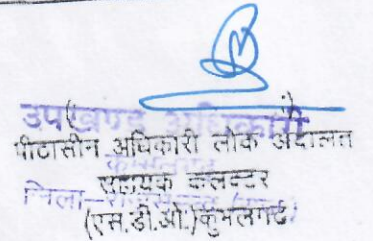 उपखण्ड अधिकारी
पीठासीन अधिकारी लोक अदालत
सहायक कलक्टर
जिला-राजसमन्द
(एस.डी.ओ.)कुंभलगढ